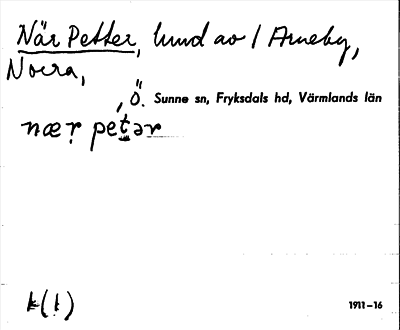 När Petter, hund av / Arneby,
Norra,
, Ö. Sunne sn, Fryksdals hd, Värmlands län
næṛ petər
k(ḷ) 1911–16